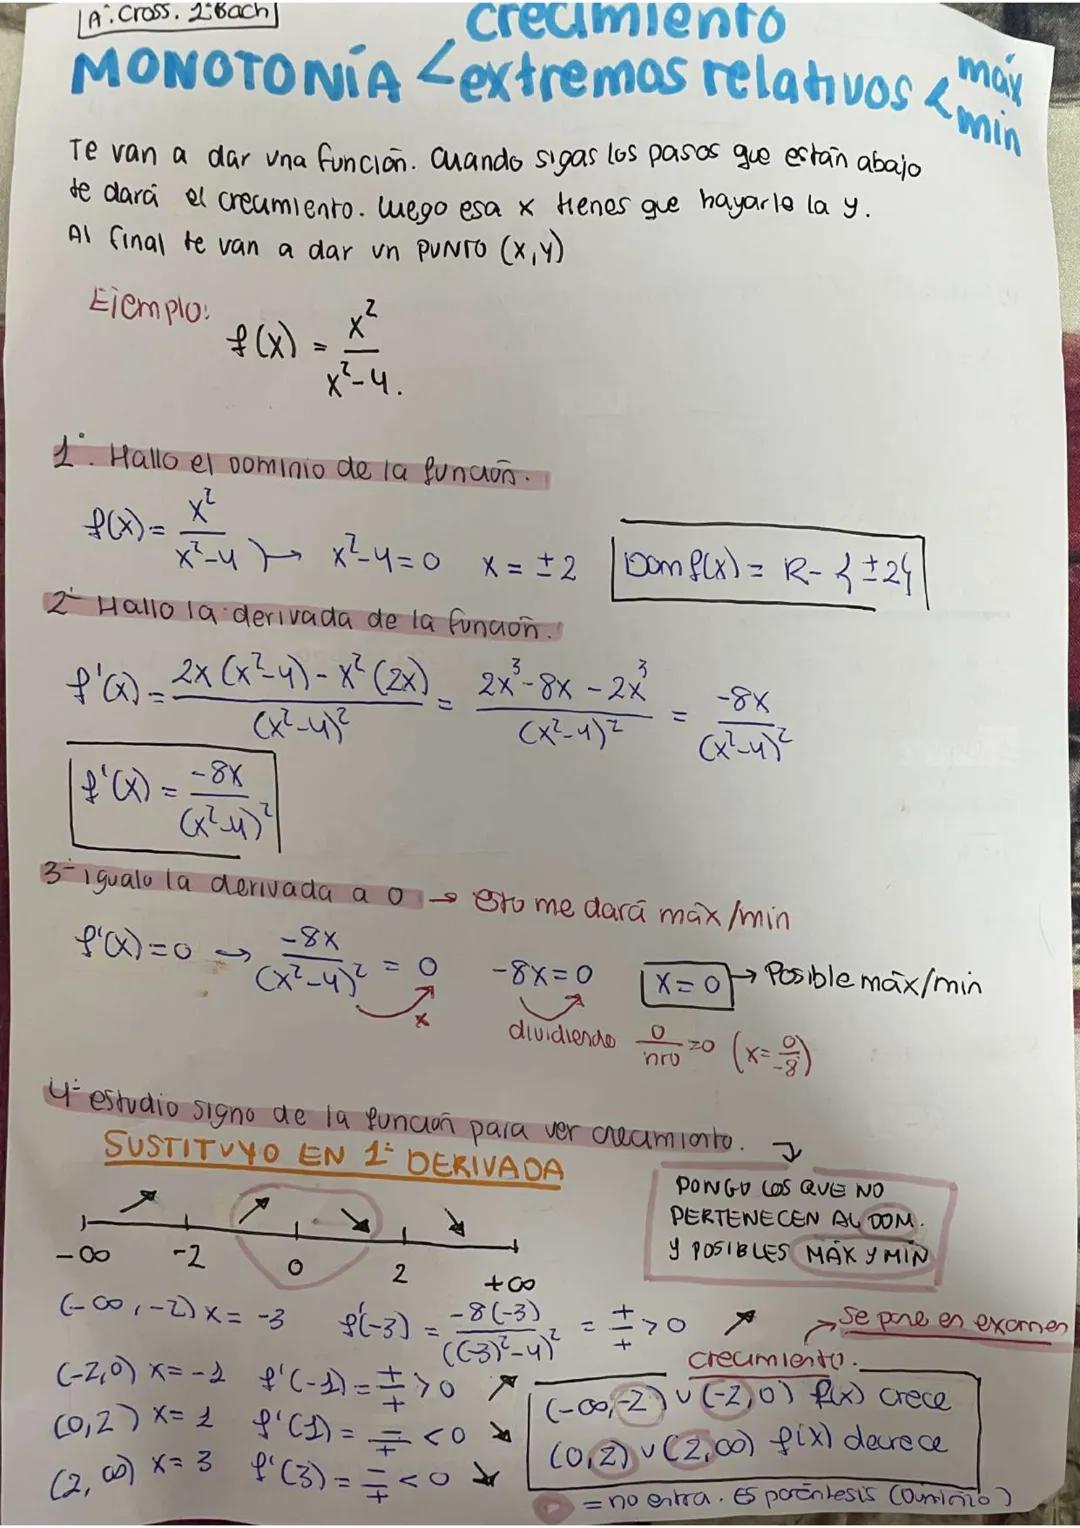 A. Cross. 2ºBach
crecimiento
MONOTONÍA < extremos relativos < máx
mín
Te van a dar una función. Cuando sigas los pasos que están abajo
te dará el crecimiento. Luego esa x tienes que hayarle la y.
Al final te van a dar un PUNTO (x,y)
Ejemplo:
f(x) = x²/x²-4.
1º. Hallo el dominio de la función.
f(x) = x²/x²-4 → x²-4=0 x = ±2 Dom f(x) = R - {±2}
2º Hallo la derivada de la función.
f'(x) = 2x(x²-4) - x²(2x)/(x²-4)² = 2x³-8x-2x³/(x²-4)² = -8x/(x²-4)²
f'(x) = -8x/(x²-4)²
3º igualo la derivada a 0 → esto me dará máx/min
f'(x)=0 → -8x/(x²-4)² = 0 -8x=0 x=0 → Posible máx/min
x dividiendo 0/nro=0 (x=0/-8)
4º estudio signo de la función para ver crecimiento.
SUSTITUYO EN 1ª DERIVADA
PONGO LOS QUE NO
PERTENECEN AL DOM.
Y POSIBLES MÁX Y MÍN
↗ ↗ ↘ ↘
-∞ -2 0 2 +∞
(-∞,-2) x=-3 f'(-3) = -8(-3)/((-3)²-4)² = +/+ >0 ↗
→ se pone en examen
crecimiento.
(-2,0) x=-1 f'(-1) = +/+ >0 ↗
(-∞,-2) ∪ (-2,0) f(x) crece
(0,2) x=1 f'(1) = -/+ <0 ↘
(0,2) ∪ (2,∞) f(x) decrece
(2,∞) x=3 f'(3) = -/+ <0 ↘
= no entra. Es paréntesis (Dominio)